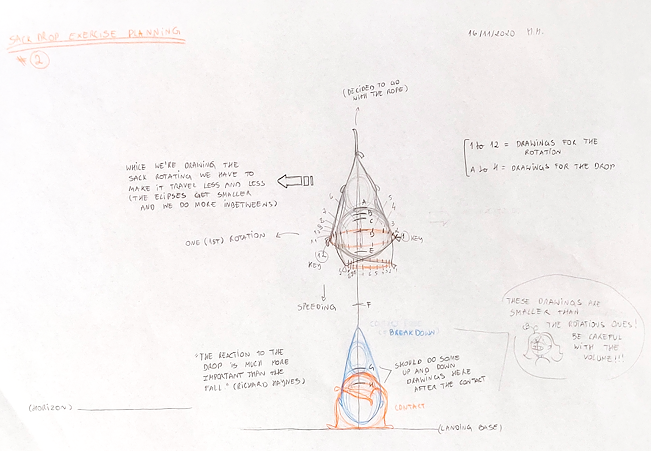 SACK DROP EXERCISE PLANNING
2
16/11/2020 M.M.
(DECIDED TO GO
WITH THE ROPE)
1 to 12 = DRAWINGS FOR THE
ROTATION
A to H = DRAWINGS FOR THE DROP
WHILE WE'RE DRAWING THE
SACK ROTATING WE HAVE TO
MAKE IT TRAVEL LESS AND LESS
(THE ELIPSES GET SMALLER
AND WE DO MORE INBETWEENS)
ONE (1ST) ROTATION
A
B
C
D
E
KEY
KEY
SPEEDING
F
BREAKDOWN
THESE DRAWINGS ARE
SMALLER THAN
THE ROTATIONS ONES!
BE CAREFUL
WITH THE
VOLUME!!!
"THE REACTION TO THE
DROP IS MUCH MORE
IMPORTANT THAN THE
FALL" (RICHARD HAYNES)
G
H
SHOULD DO SOME
UP AND DOWN
DRAWINGS HERE
AFTER THE CONTACT
CONTACT
(HORIZON)
(LANDING BASE)